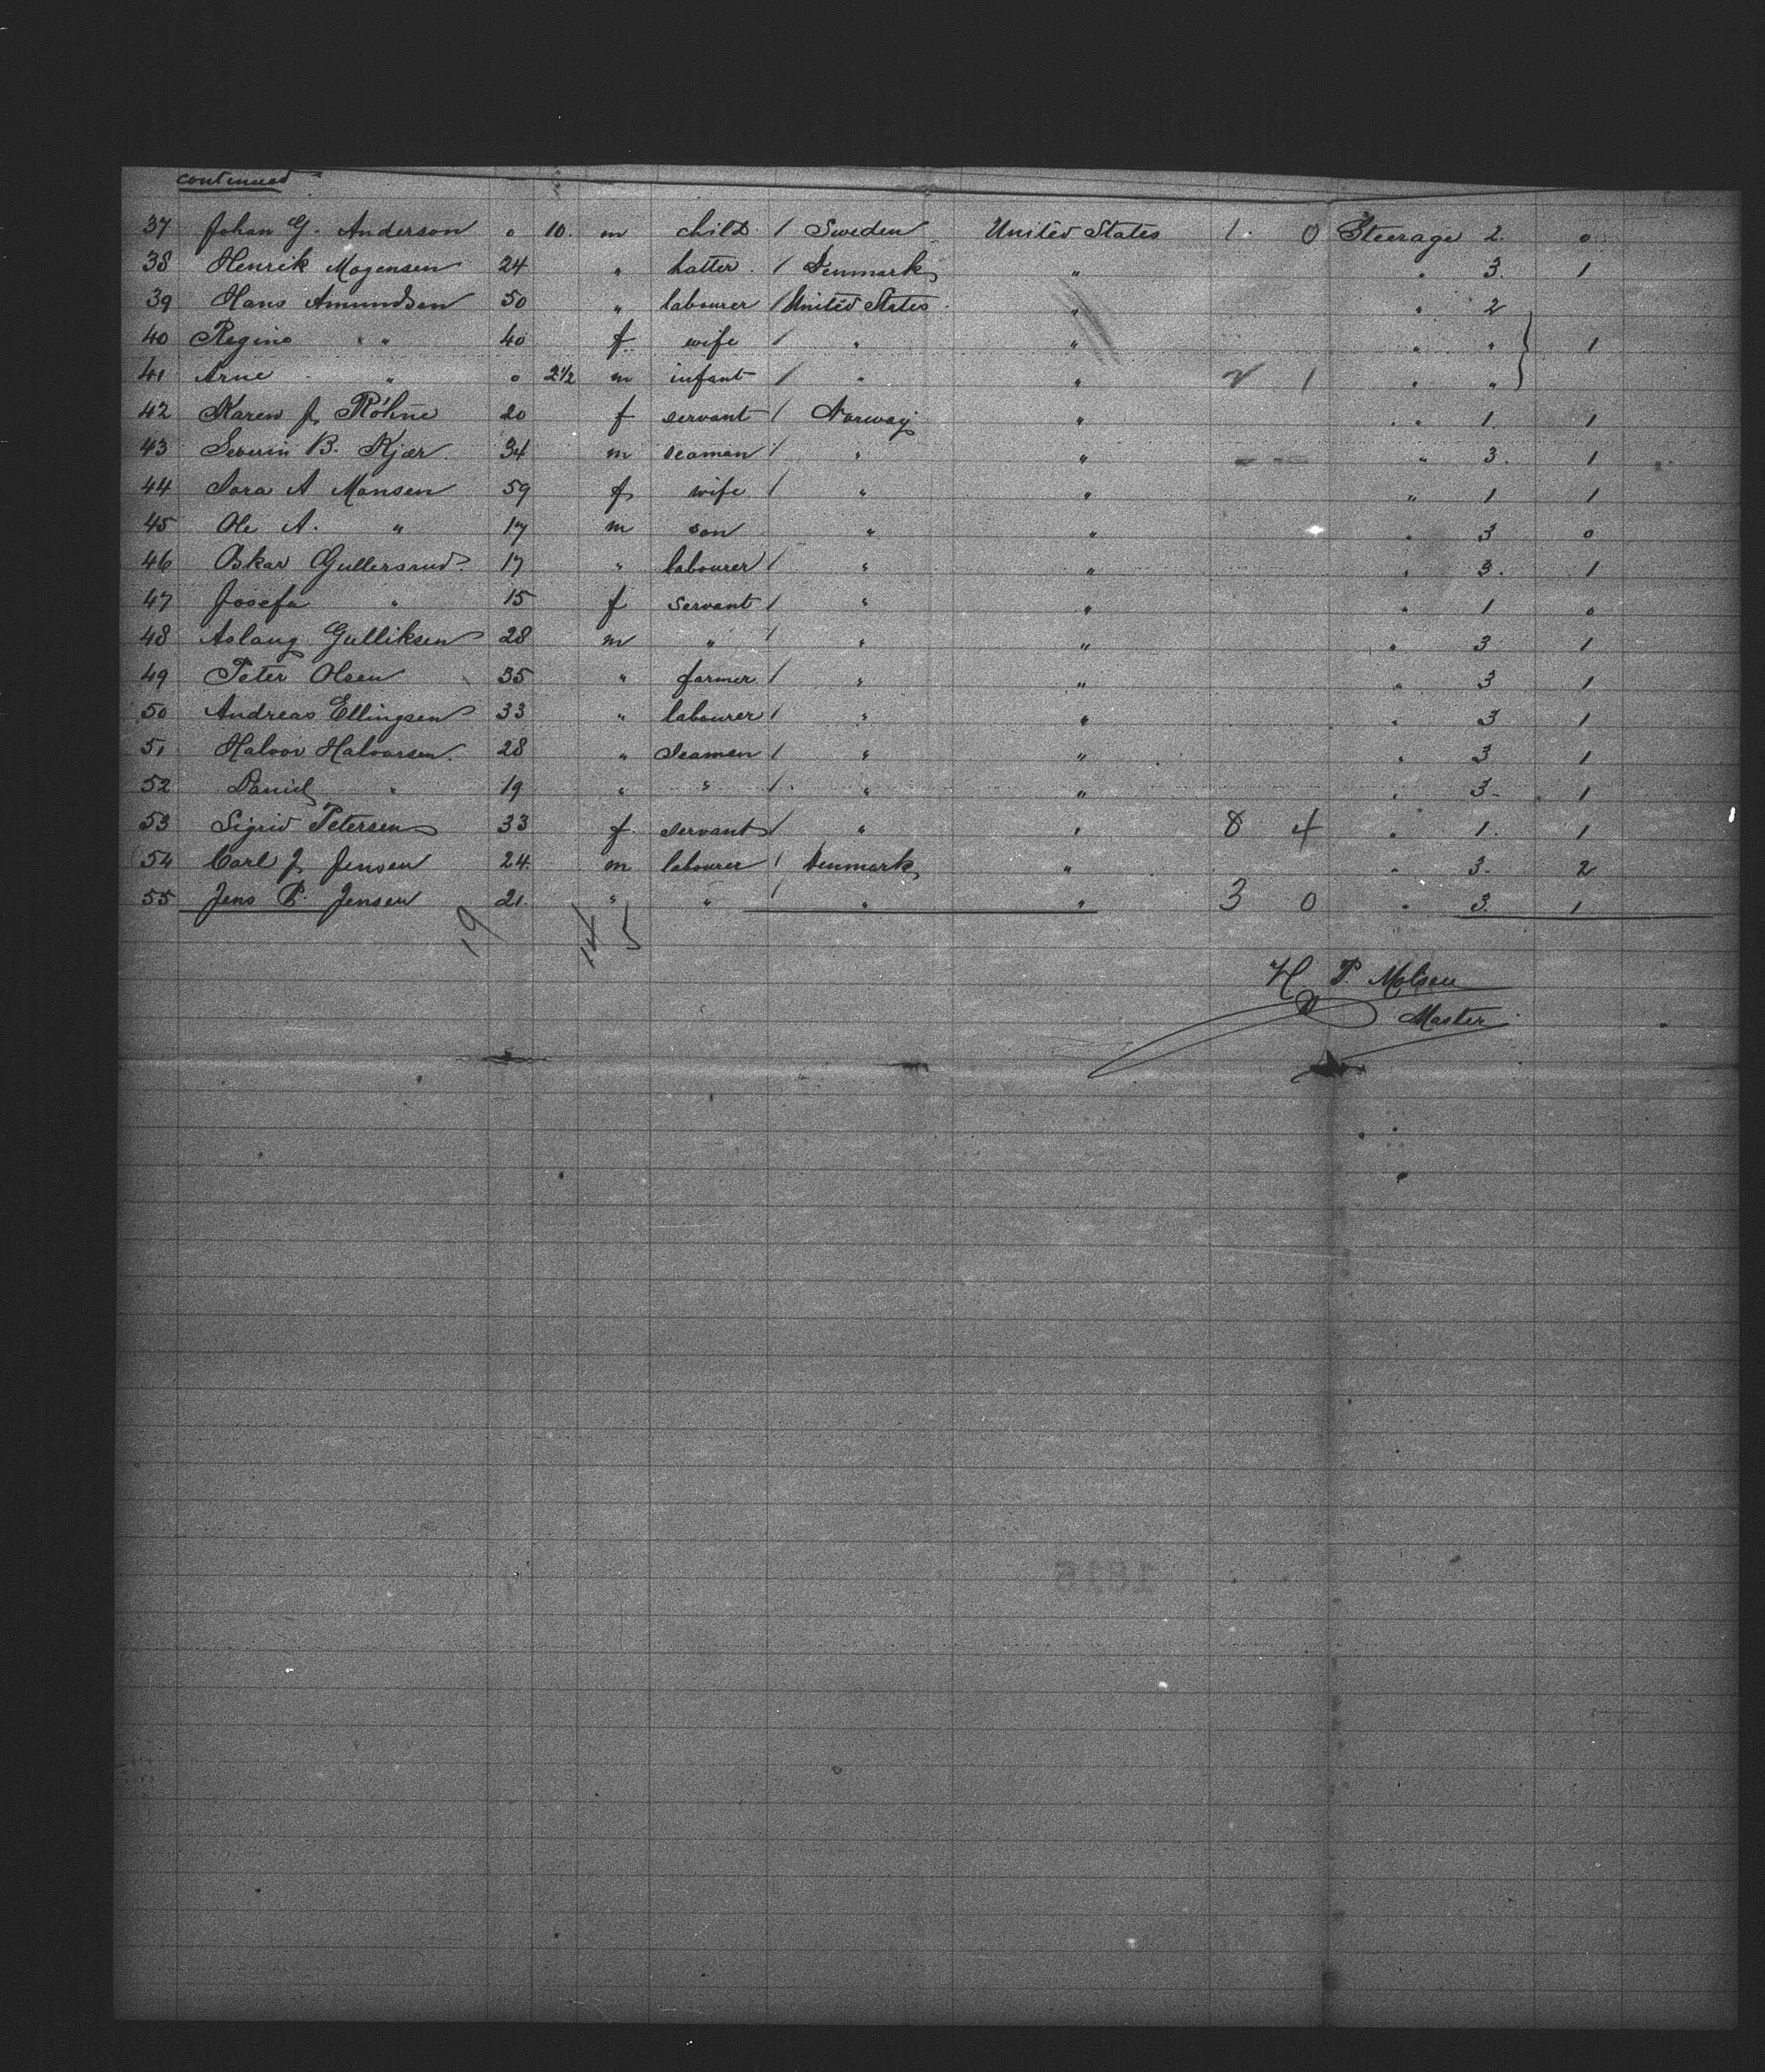 continued
37 Johan G. Anderson 0 10. m child / Sweden United States 1. 0 Steerage 2. 0
38 Henrik Mogensen 24 " hatter / Denmark " " 3. 1
39 Hans Amundsen 50 " labourer / United States " " 2
40 Regine " " 40 f wife / " " " " } 1
41 Arne " 0 2 1/2 m infant / " " 2 1 " "
42 Karen J. Röhne 20 f servant / Norway " " 1. 1
43 Severin B. Kjær. 34 m seaman / " " " 3. 1
44 A Monsen 59 f wife / " " " 1 1
45 Ole A. " 17 m son " " " 3 0
46 Oskar Gullersrud 17 " labourer / " " " 3. 1
47 Josefa " 15 f servant / " " " 1 0
48 Aslaug Gulliksen 28 m " / " " " 3 1
49 Peter Olsen 35 " farmer / " " " 3 1
50 Andreas Ellingsen 33 " labourer / " " " 3 1
51 Halvor Halvorsen. 28 " Seaman / " " " 3 1
52 Daniel " 19 " " / " " " 3 - 1
53 Sigrid Petersen 33 f. servant / " " 8 4 " 1. 1
54 Carl J. Jensen 24. m labourer / Denmark " " 3. 2
55 Jens P. Jensen 21. " " / " " 3 0 " 3. 1
19 14 5
H P. Molsen
Master
1816